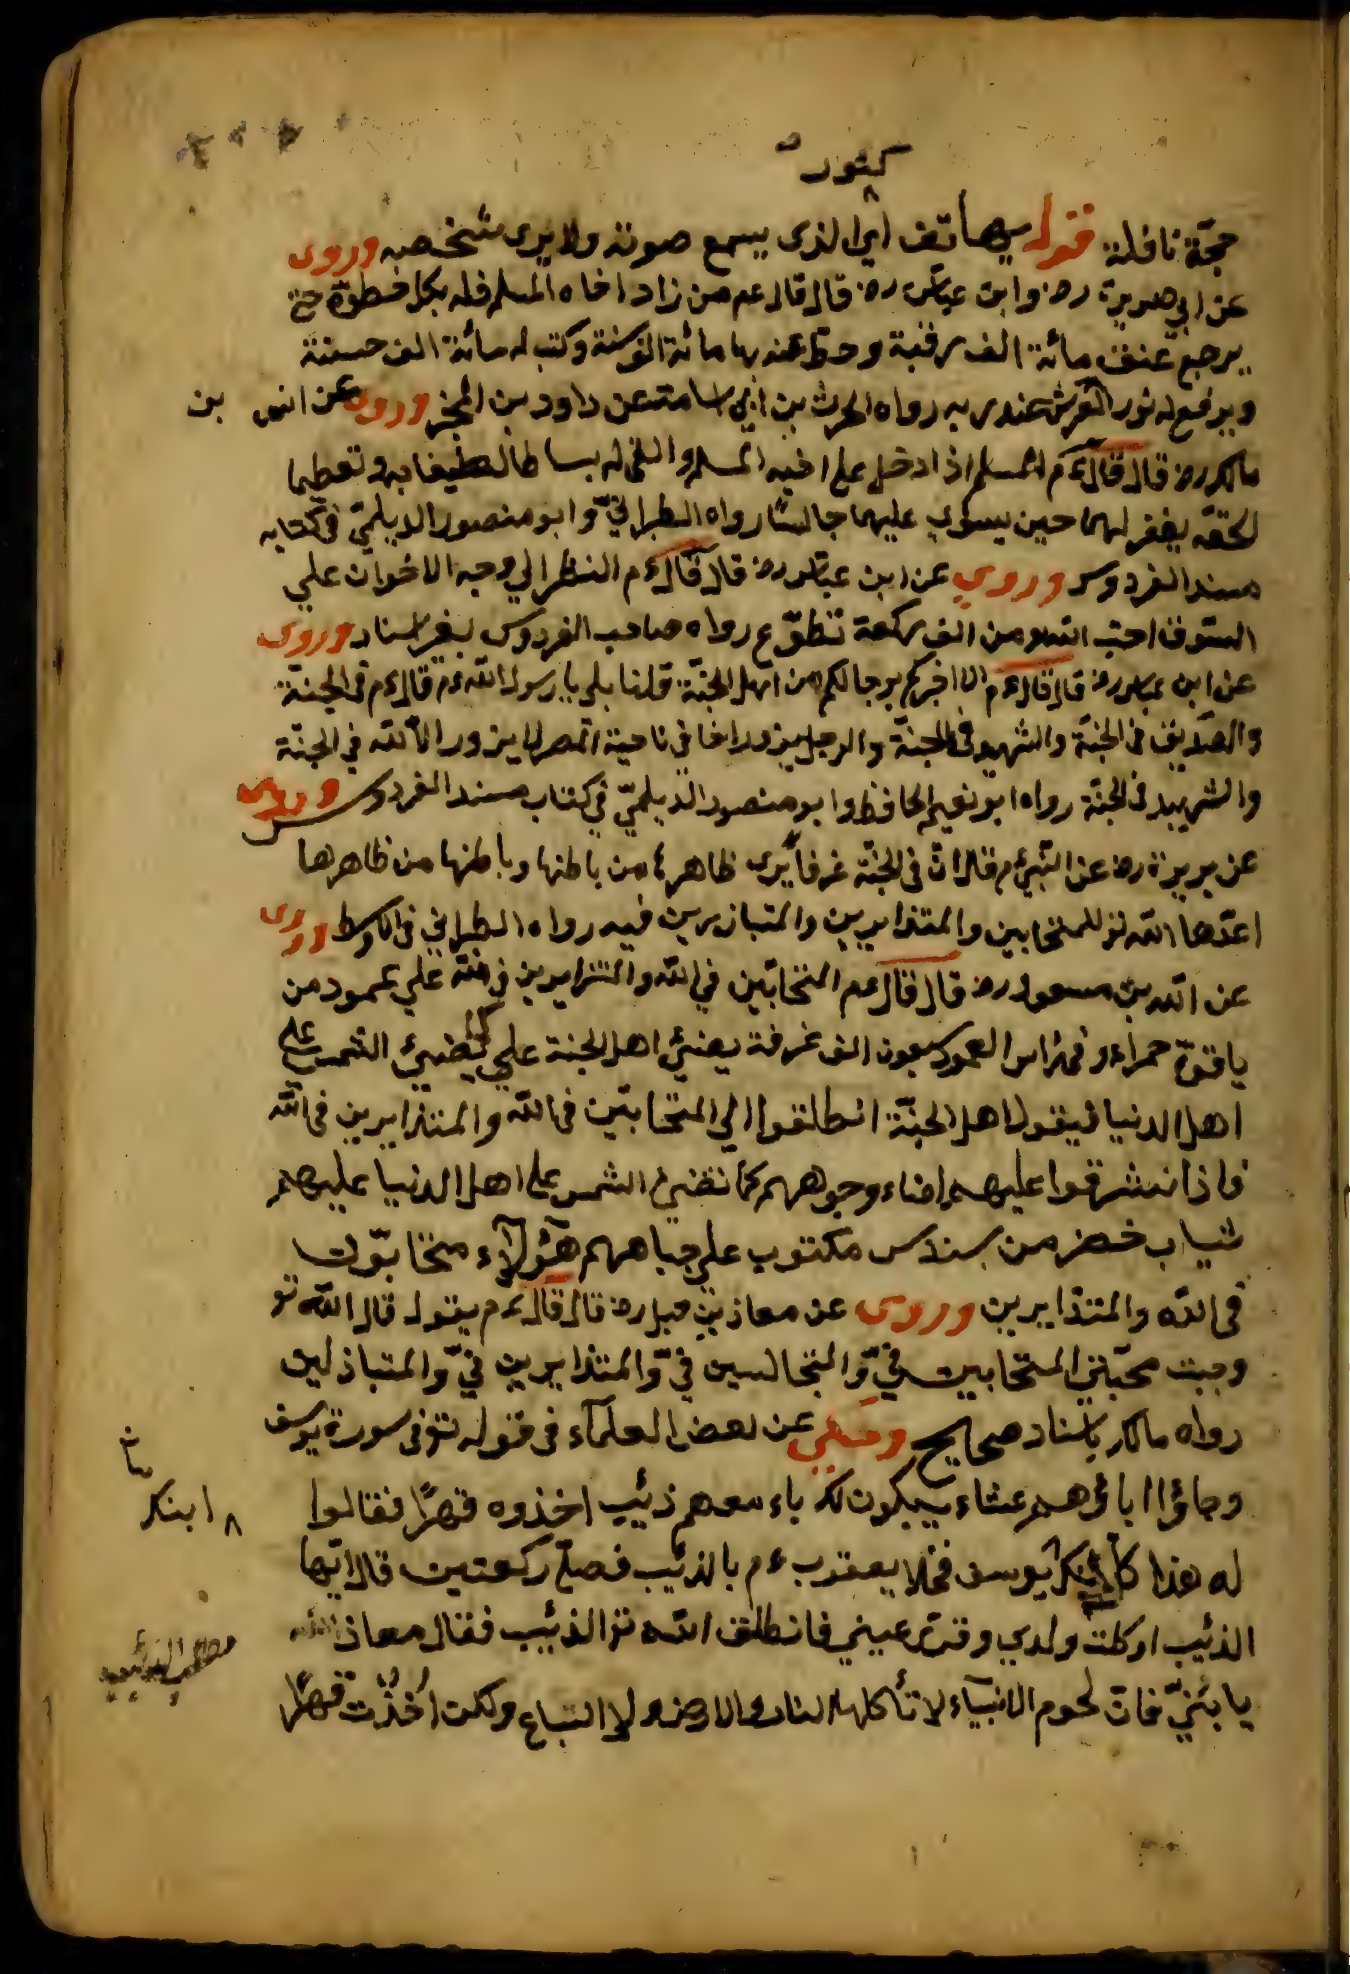 كتور
حجّة نافلة قوله هاتف اى الذى يسمع صوته ولا يرى شخصه وروى
عن ابي هريرة رض وابن عباس رض قال قال عم من زار اخاه المسلم فله بكل خطوة حتى
يرجع عتق مائة الف رقبة وحط عنه بها مائة الف سنة وكتب له مائة الف حسنة
ويرفع له نور العرش عند ربه رواه الحرث بن ابي اسامة عن داود بن المحبر وروى عن انس بن
مالك رض قال قال عم المسلم اذا دخل على اخيه المسلم والقى له بساطا لطيفا به وتعظيما
لحقه يغفر لهما حين يستوى عليهما جالسا رواه الطبراني وابو منصور الديلميّ في كتابه
مسند الفردوس وروي عن ابن عباس رض قال قال عم النظر الي وجه الاخوان علي
الشوق احب الله من الف ركعة تطوّع رواه صاحب الفردوس بغير اسناد وروى
عن ابن عباس رض قال قال عم الا اخبركم برجالكم من اهل الجنّة قلنا بلى يا رسول الله عم قال عم في الجنّة
والصدّيق في الجنّة والشهيد في الجنّة والرجل يزور اخا في ناحية المصر لا يزور الا لله في الجنّة
والشهيد في الجنّة رواه ابو نعيم الحافظ وابو منصور الديلميّ في كتاب مسند الفردوس وروى
عن بريزة رض عن النّبيّ عم قال انّ في الجنّة غرفا يرى ظاهرها من باطنها وباطنها من ظاهرها
اعدّها الله تو للمتحابين والمتزايرين والمتباذرين فيه رواه الطبراني في الاوسط وروى
عن الله بن مسعود رض قال قال عم المتحابّين في الله والمتزايرين في الله علي عمود من
ياقوتة حمراء وفي راس العمود سبعون الف غرفة يضئ اهل الجنة علي كما يضئ الشمس على
اهل الدنيا فيقول اهل الجنّة انطلقوا الى المتحابّين في الله والمتزايرين في الله
فاذا تشرقوا عليهم اضاء وجوههم كما تضئ الشمس على اهل الدنيا عليهم
ثياب خضر من سندس مكتوب علي جباههم هؤلاء متحابّون
في الله والمتزايرين وروى عن معاذ بن جبل رض قال قال عم يقول قال الله تو
وجبت محبتي المتحابين فيّ والمتجالسين فيّ والمتزايرين فيّ والمتباذلين
رواه مالك باسناد صحيح وحكي عن بعض العلماء في قوله تو في سورة يوسف
وجاؤا اباهم عشاء يبكون لك باء معهم ذئيب اخذوه قهرًا فقالوا
ابنك
له هذا كل يوسف فخلا يعقوب عم بالذئيب فصلّى ركعتين قال ايّها
الذئيب اوكلت ولدي وقرّة عيني فانطلق الله تو الذئيب فقال معاذ الله
مطلب الذئيب
يا بنيّ فانّ لحوم الانبياء لا تأكلها النار والارض ولا السّباع ولكن اُخذت قهرًا